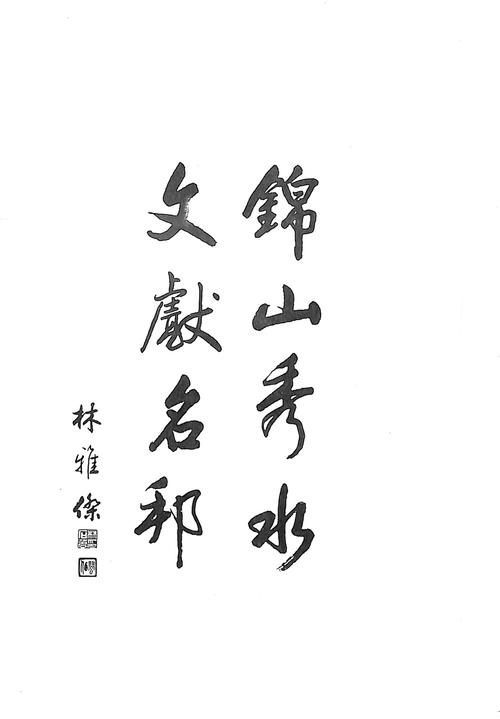 錦山秀水
文獻名邦
林雅傑